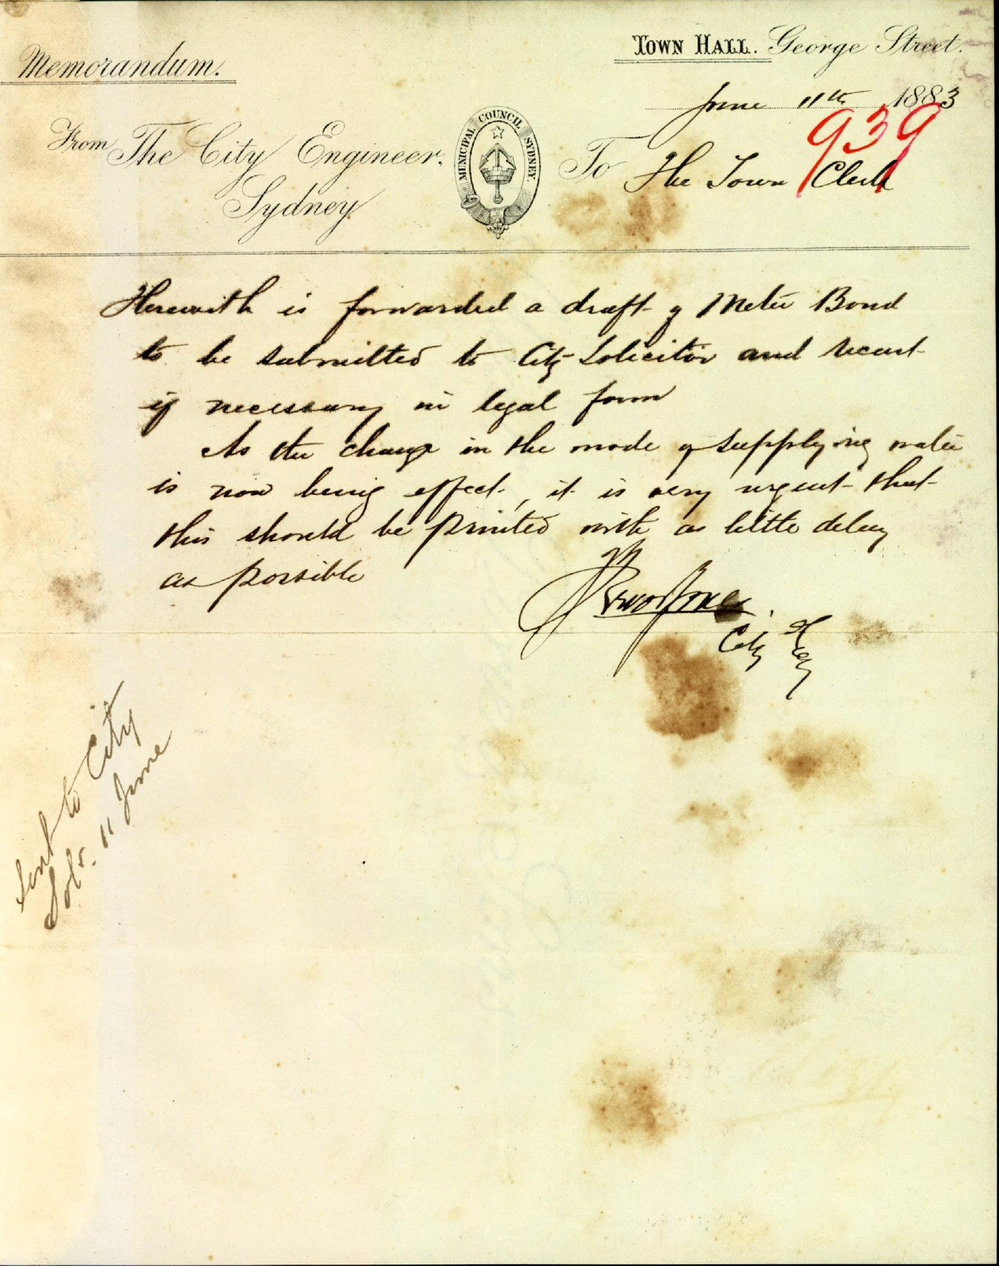 Memorandum.
TOWN HALL. George Street.
June 11th 1883
939
From The City Engineer.
Sydney.
MUNICIPAL COUNCIL SYDNEY
To The Town Clerk
Herewith is forwarded a draft of Meter Bond
to be submitted to City Solicitor and recast
if necessary in legal form
As the change in the mode of supplying water
is now being effect, it is very urgent that
this should be printed with as little delay
as possible
Trevor Jones
City Eng
Sent to City
Solr. 11 June